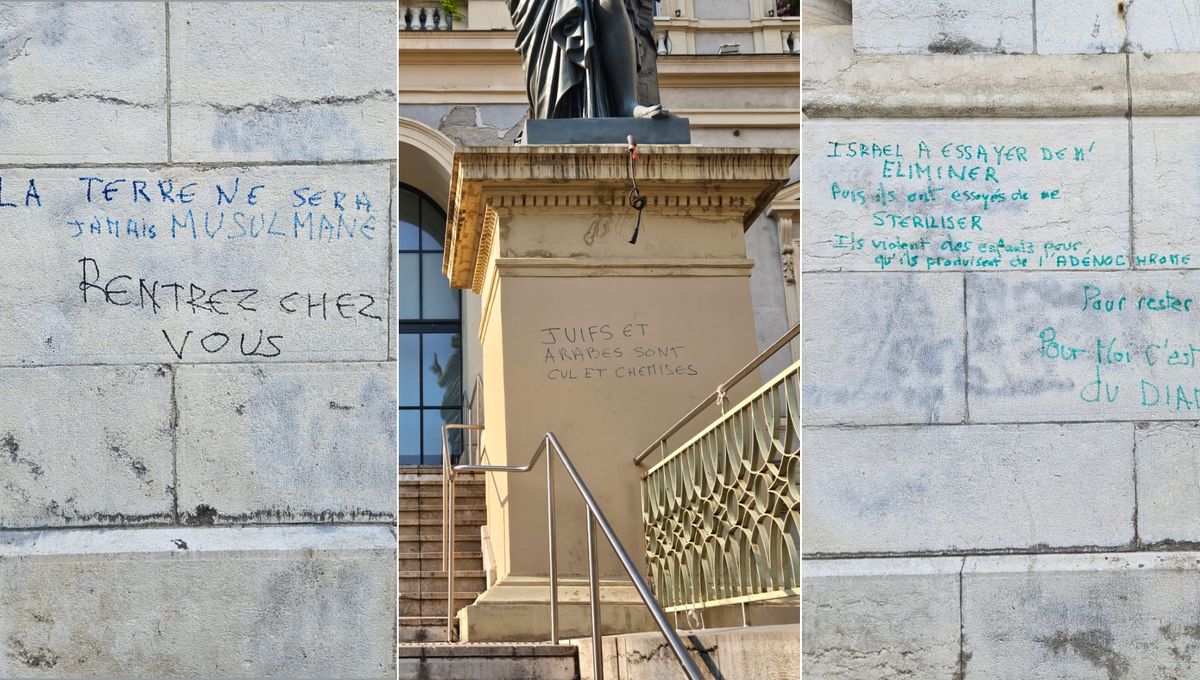 LA TERRE NE SERA
JAMAIS MUSULMANE
RENTREZ CHEZ
VOUS
JUIFS ET
ARABES SONT
CUL ET CHEMISES
ISRAEL A ESSAYER DE M'
ELIMINER
Puis ils ont essayés de me
STERILISER
Ils violent des enfants pour
qu'ils produisent de l'ADÉNOCHROME
Pour rester
Pour Moi C'est
du